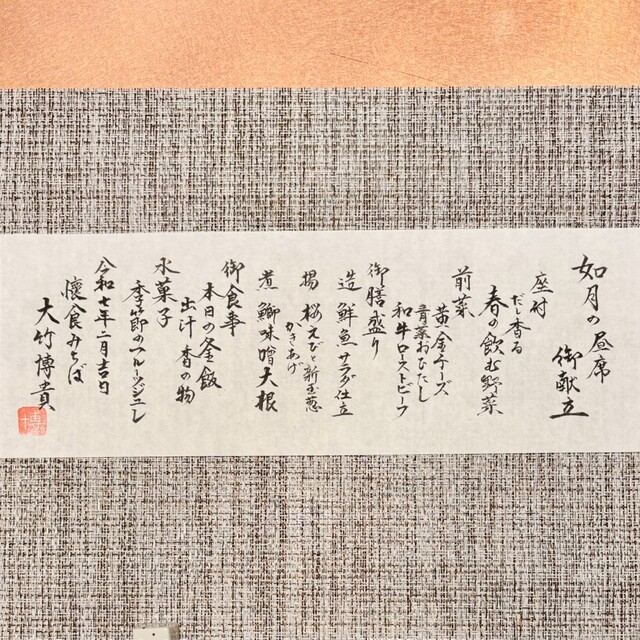 如月の昼席
御献立
座付
だし香る
春の飲む野菜
前菜
黄金チーズ
青菜おひたし
和牛ローストビーフ
御膳盛り
造 鮮魚サラダ仕立
揚 桜えびと新玉葱
かきあげ
煮 鰤味噌大根
御食事
本日の釜飯
出汁 香の物
水菓子
季節のフルーツジュレ
令和七年二月吉日
懐食みちば
大竹博貴
博